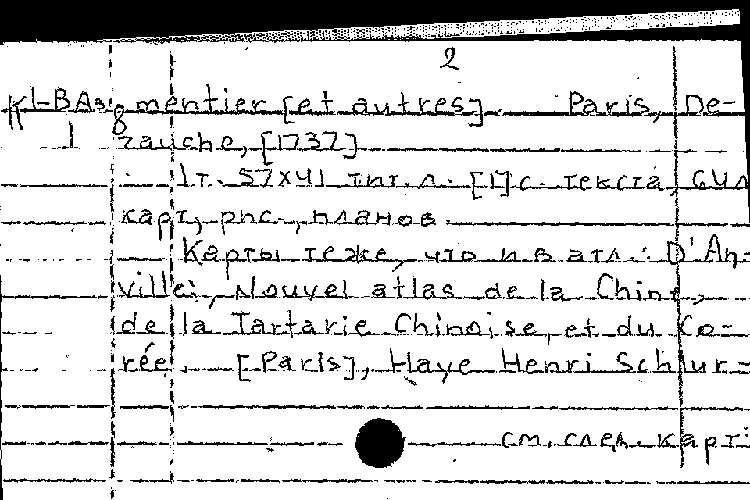 2
К1-ВАз8 mentier [et autres]. Paris, De-
1 zauche, [1737]
1т. 57x41 тит. л. [1]с. текста, 64л
карт, рис., планов.
Карты теже, что и в атл.: D'An-
ville: Nouvel atlas de la Chine,
de la Tartarie Chinoise, et du Co-
rée. [Paris], Haye Henri Scheur-
см. след. карт